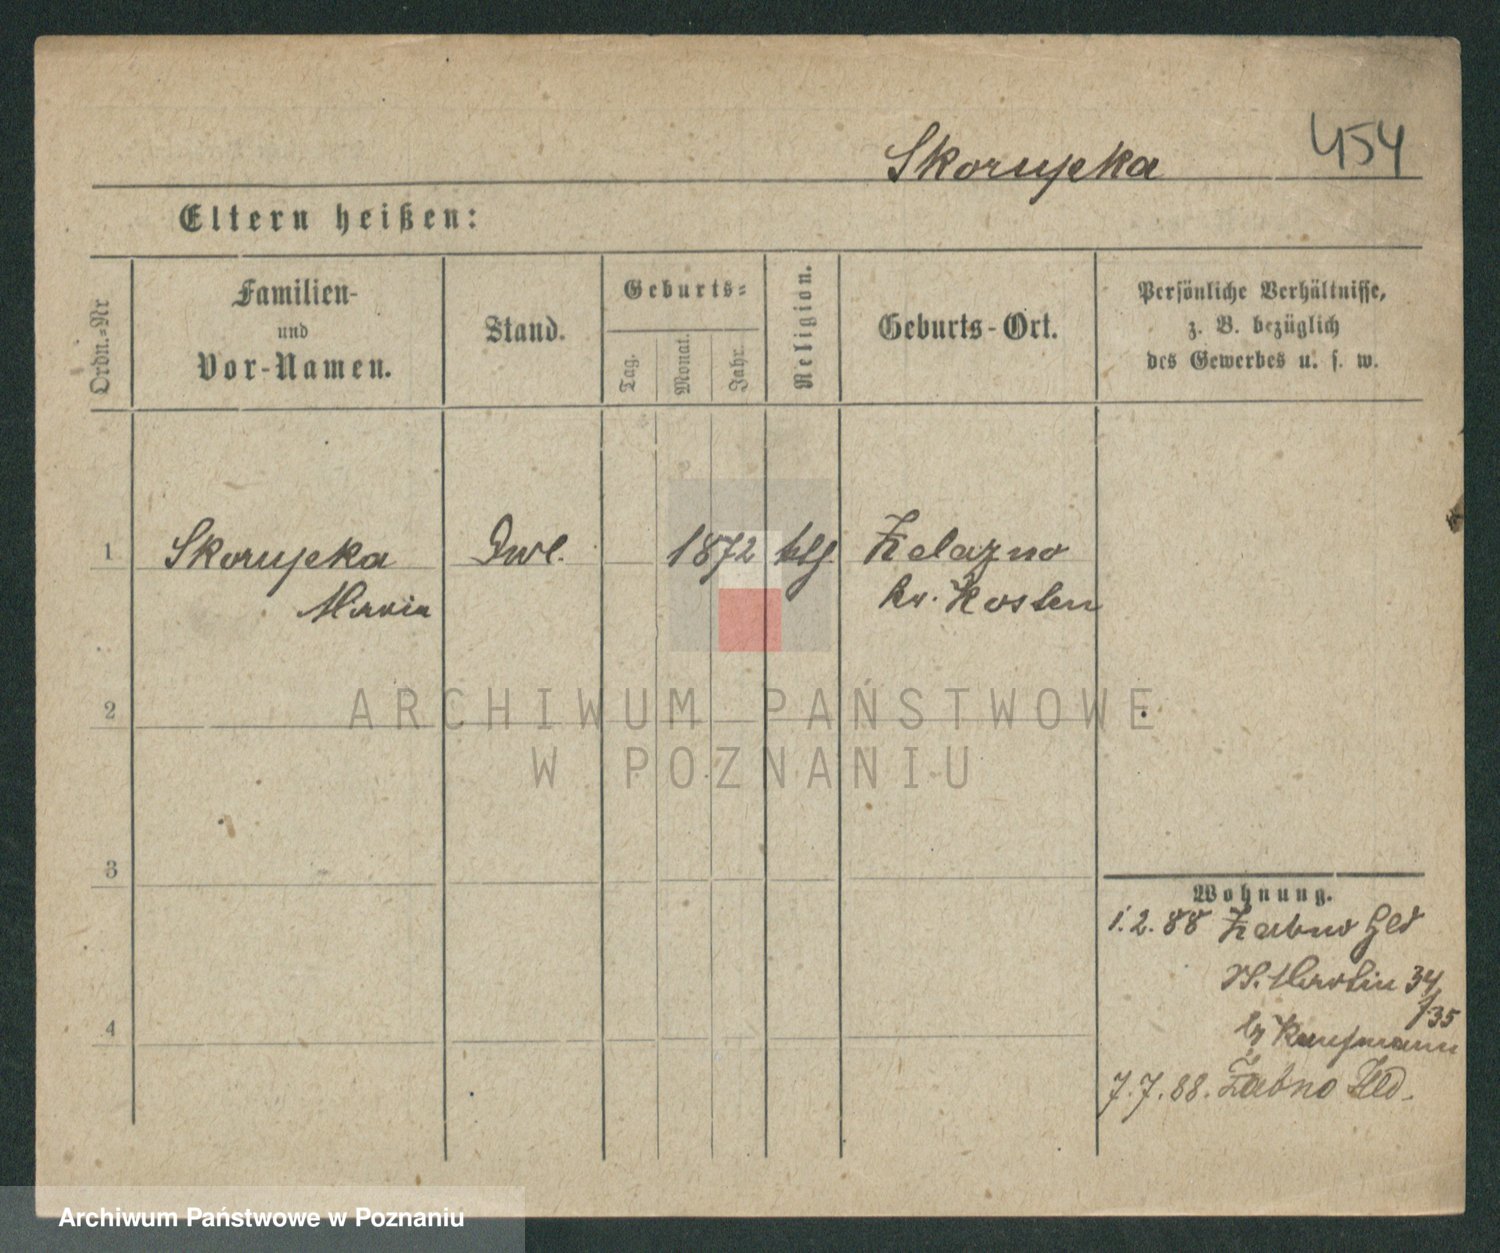 Skorupka 454
Eltern heißen:
Ordn.-Nr
Familien-
und
Vor-Namen.
Stand.
Geburts-
Tag.
Monat.
Jahr.
Religion.
Geburts-Ort.
Persönliche Verhältnisse,
z. B. bezüglich
des Gewerbes u. s. w.
1 Skorupka 1872 Zelazno
Maria Kr. Kosten
2
ARCHIWUM PAŃSTWOWE
W POZNANIU
3
Wohnung.
1.2.88 Zabno
St. Martin 34
/35
Kaufmann
4
7.7.88. Żabno
Archiwum Państwowe w Poznaniu